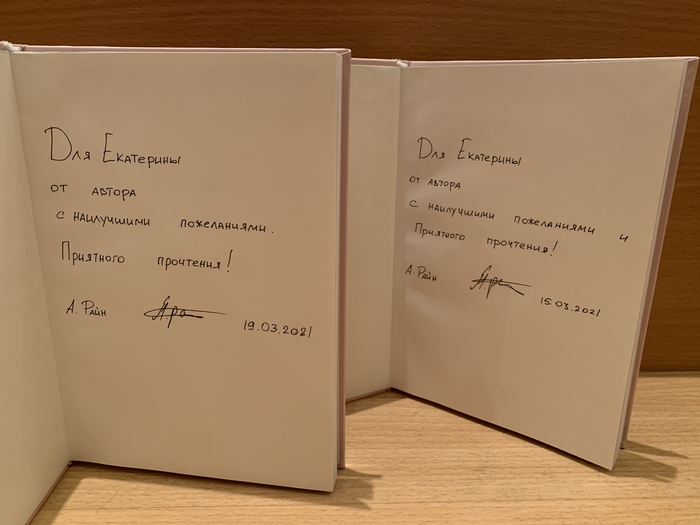 Для Екатерины
от автора
с наилучшими пожеланиями.
Приятного прочтения!
А. Райн
19.03.2021
Для Екатерины
от автора
с наилучшими пожеланиями и
Приятного прочтения!
А. Райн
15.03.2021